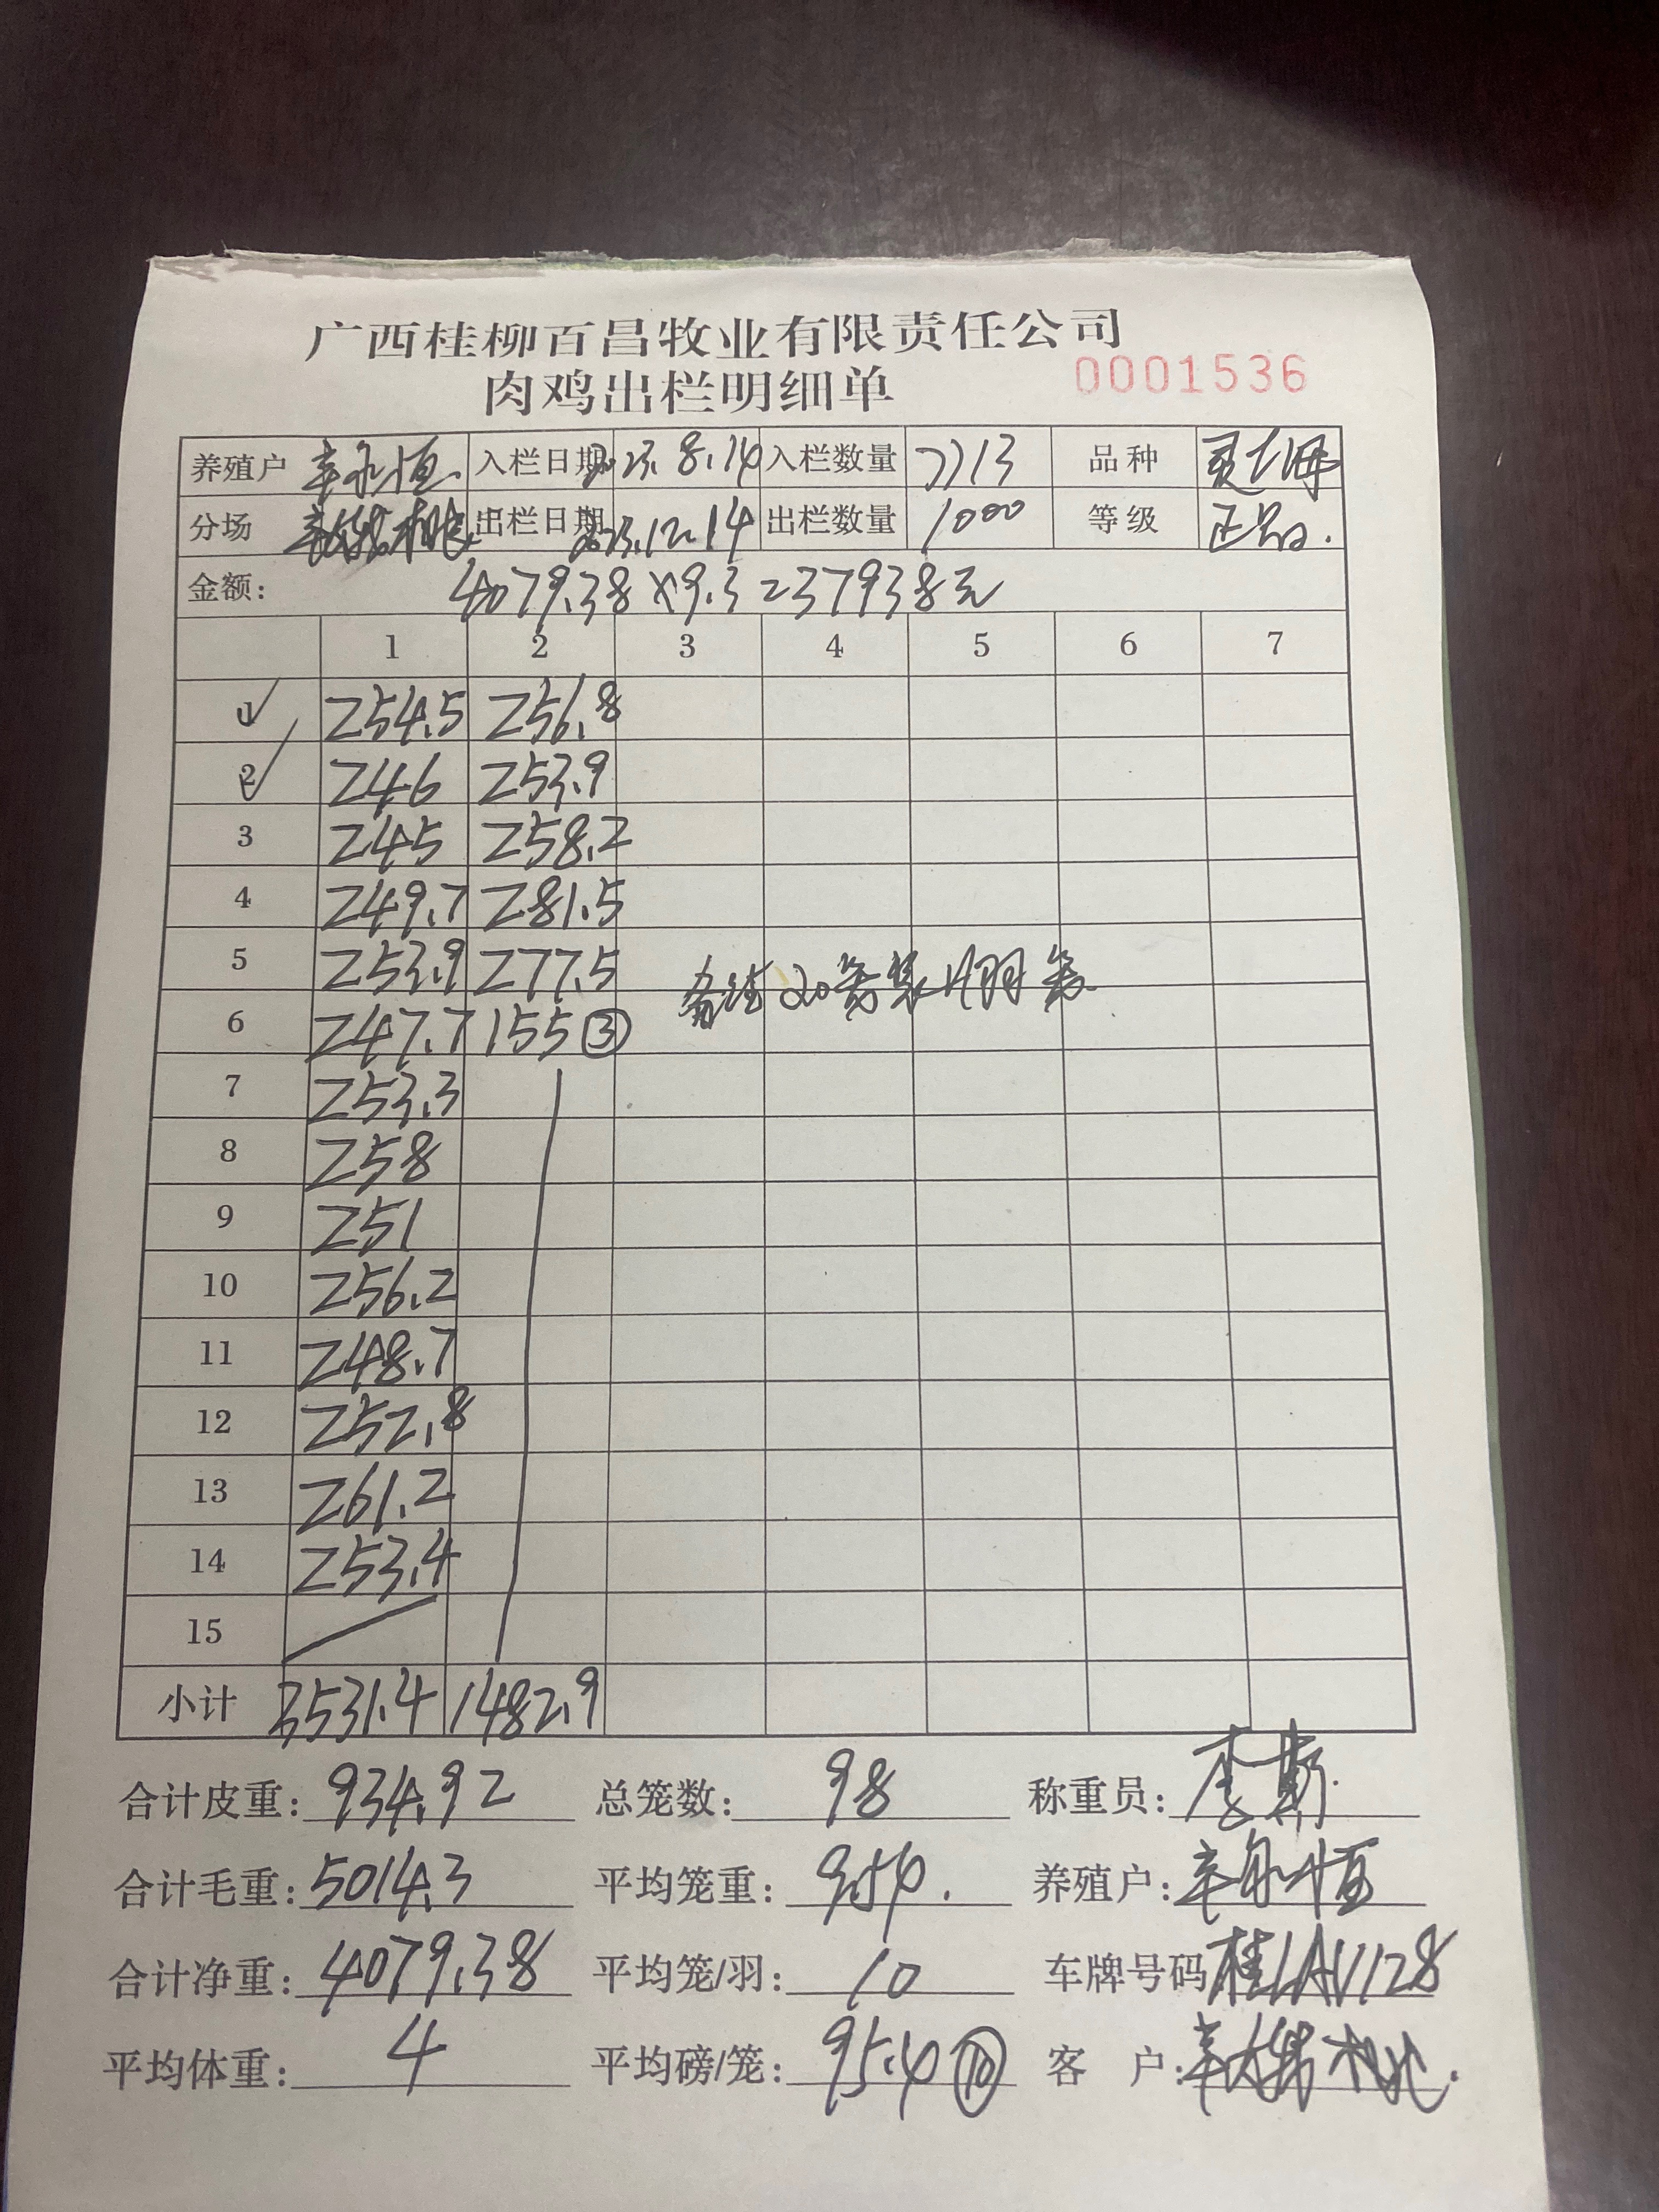 广西桂柳百昌牧业有限责任公司
肉鸡出栏明细单 0001536
养殖户 辛永恒 入栏日期 23.8.14 入栏数量 7713 品种
分场 出栏日期 23.12.14 出栏数量 1000 等级 正品.
金额: 4079.38×9.3=37938元
1 2 3 4 5 6 7
1 254.5 256.8
2 246 253.9
3 245 258.2
4 249.7 281.5
5 253.9 277.5 备注20条装
6 247.7 155 ③
7 253.3
8 258
9 251
10 256.2
11 248.7
12 252.8
13 261.2
14 253.4
15
小计 3531.4 1482.9
合计皮重: 934.92 总笼数: 98 称重员: 李斯
合计毛重: 5014.3 平均笼重: 9.54. 养殖户: 辛永恒
合计净重: 4079.38 平均笼/羽: 10 车牌号码 桂LAV128
平均体重: 4 平均磅/笼: 95.4 ⑩ 客 户: